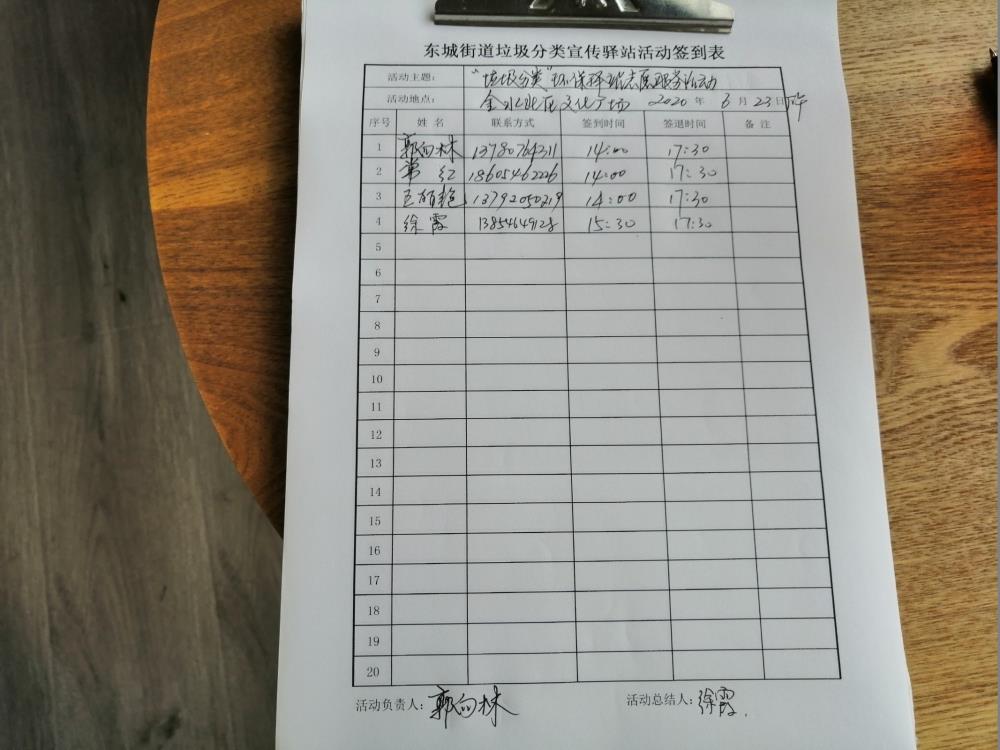 东城街道垃圾分类宣传驿站活动签到表
活动主题： "垃圾分类"环保驿站志愿服务活动
活动地点： 金水北区文化广场 2020 年 6 月 23 日
序号 姓 名 联系方式 签到时间 签退时间 备 注
1 郭向林 13780764311 14:00 17:30
2 常红 18605462226 14:00 17:30
3 13792050219 14:00 17:30
4 徐霞 13854649128 15:30 17:30
5
6
7
8
9
10
11
12
13
14
15
16
17
18
19
20
活动负责人：郭向林 活动总结人：徐霞.